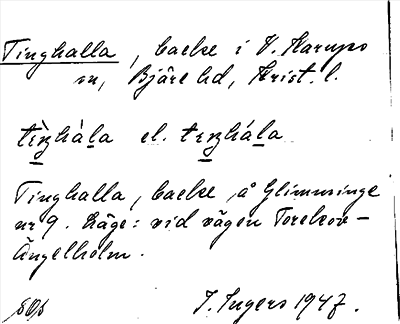 Tinghalla, backe i V. Karups
sn, Bjäre hd, Krist. l.
tìŋhàla el. tıŋhála
Tinghalla, backe å Glimminge
nr 9. Läge: vid vägen Torekov-
Ängelholm.
I. Ingers 1947.